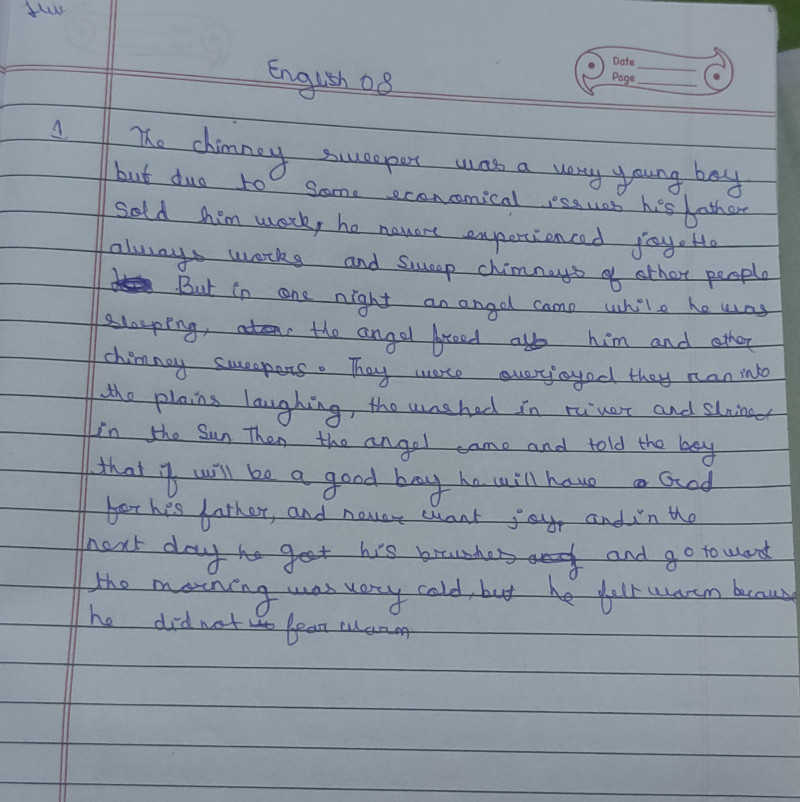 HW
English 08
Date
Page
1 The chimney sweeper was a very young boy
but due to some economical issues his father
sold him work, he never experienced joy. He
always works and sweep chimneys of other people
But in one night an angel came while he was
sleeping, the angel freed him and other
chimney sweepers. They were overjoyed they ran into
the plains laughing, the washed in river and shined
in the sun Then the angel came and told the boy
that if will be a good boy he will have a God
for his father, and never want joy, and in the
next day he got his brushes and go to work
the morning was very cold, but he felt warm because
he did not fear warm